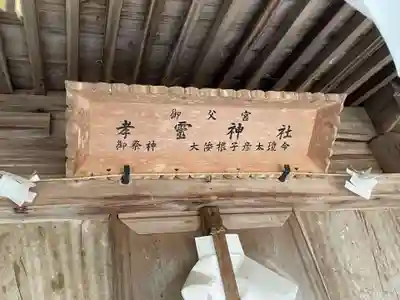 御父宮
孝靈神社
御祭神 大倭根子彦太瓊命